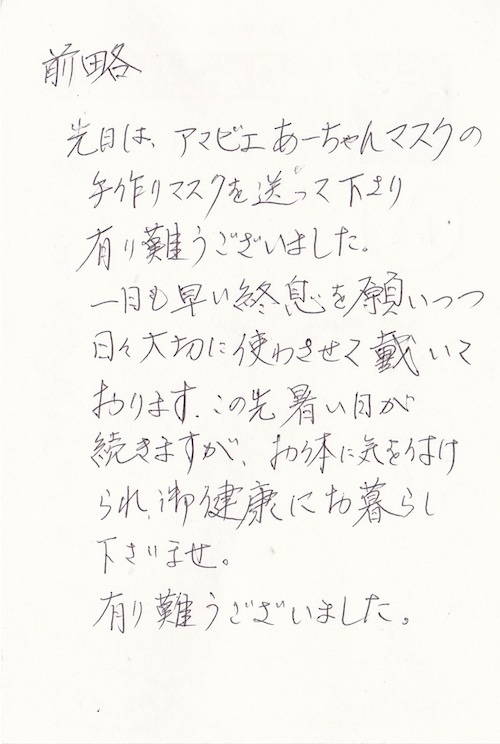 前略
先日は、アマビエあーちゃんマスクの
手作りマスクを送って下さり
有り難うございました。
一日も早い終息を願いつつ
日々大切に使わさせて戴いて
おります。この先暑い日が
続きますが、お体に気を付け
られ、御健康にお暮らし
下さいませ。
有り難うございました。